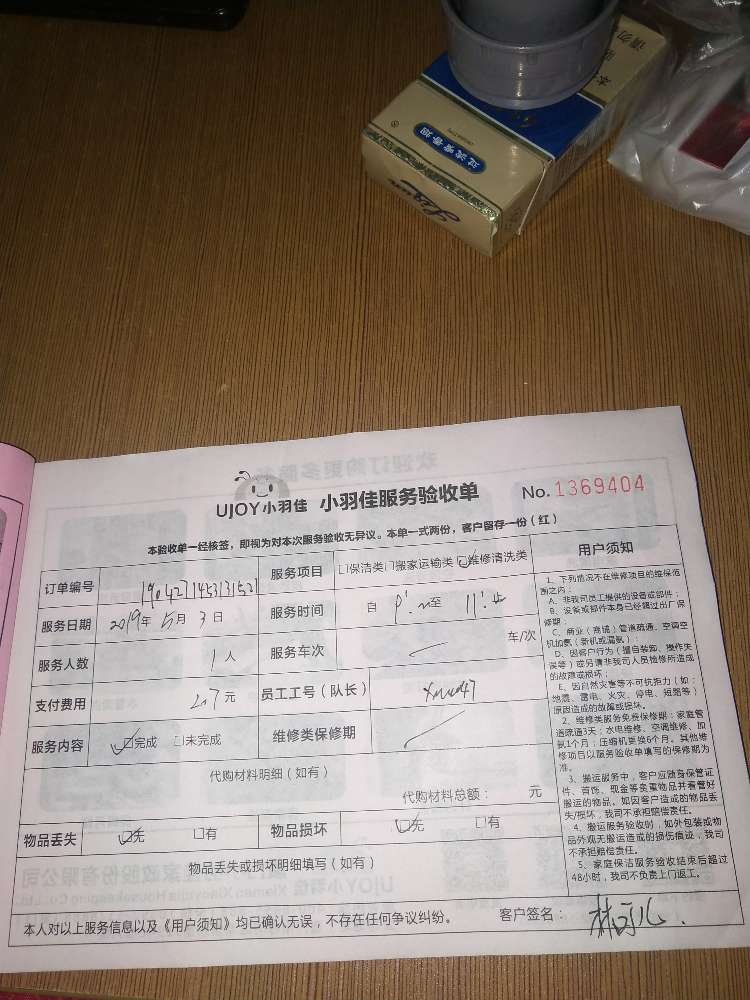 过滤嘴香烟
Liqun
UJOY小羽佳 小羽佳服务验收单 No. 1369404
本验收单一经核签，即视为对本次服务验收无异议。本单一式两份，客户留存一份（红）
订单编号 服务项目 □保洁类 □搬家运输类 ☑维修清洗类
服务日期 2019年 5月 3日 服务时间 自 至
服务人数 1人 服务车次 车/次
支付费用 217元 员工工号（队长）
服务内容 ☑完成 □未完成 维修类保修期
代购材料明细（如有）
代购材料总额： 元
物品丢失 ☑无 □有 物品损坏 ☑无 □有
物品丢失或损坏明细填写（如有）
用户须知
1、下列情况不在维修项目的维保范
围之内：
A、非我司员工提供的设备或部件；
B、设备或部件本身已经超过出厂保
修期；
C、商业（商铺）管道疏通、空调空
机加氨（新机或漏氨）；
D、因客户行为（擅自装卸、操作失
误等）或另请非我司人员检修所造成
的故障或损坏；
E、因自然灾害等不可抗拒力（如：
地震、雷电、火灾、停电、短路等）
原因造成的故障或损坏。
2、维修类服务免费保修期：家庭管
道疏通3天；水电维修、空调维修、加
氨1个月；压缩机更换6个月。其他维
修项目以服务验收单填写的保修期为
准。
3、搬运服务中，客户应随身保管证
件、首饰、现金等贵重物品并看管好
搬运的物品。如因客户造成的物品丢
失/损坏，我司不承担赔偿责任。
4、搬运服务验收时，如外包装或物
品外观无搬运造成的损伤痕迹，我司
不承担赔偿责任。
5、家庭保洁服务验收结束后超过
48小时，我司不负责上门返工。
本人对以上服务信息以及《用户须知》均已确认无误，不存在任何争议纠纷。 客户签名：